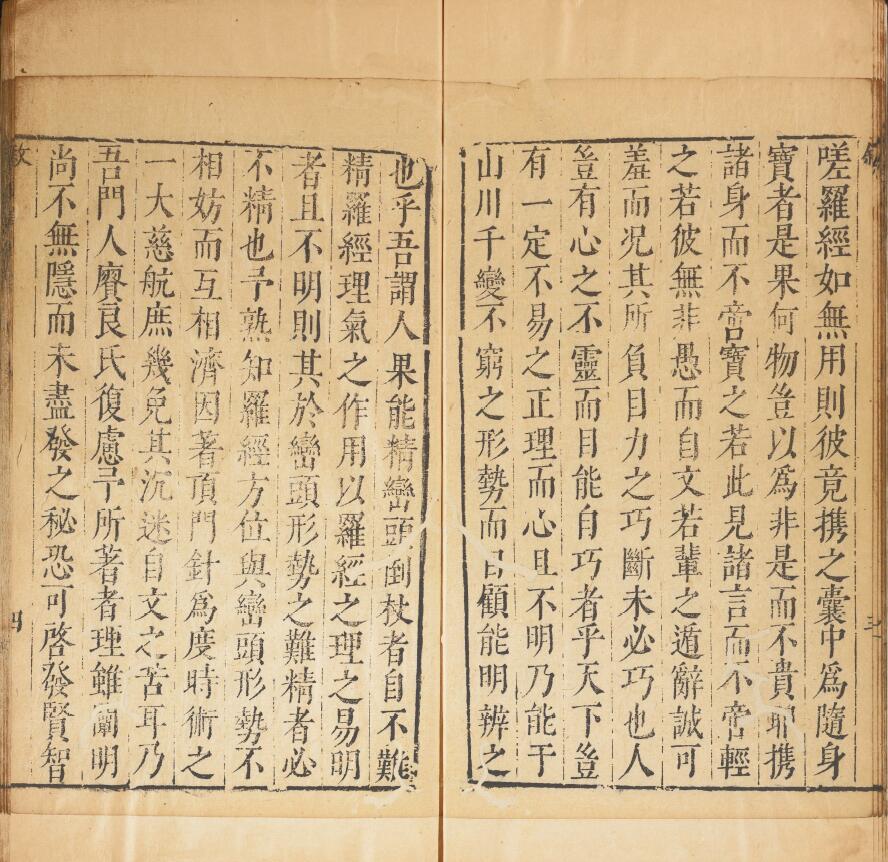 嗟羅經如無用則彼竟携之囊中爲隨身
寳者是果何物豈以爲非是而不貴耶携
諸身而不啻寳之若此見諸言而不啻輕
之若彼無非愚而自文若輩之遁辭誠可
羞而况其所負目力之巧斷未必巧也人
豈有心之不靈而目能自巧者乎天下豈
有一定不易之正理而心且不明乃能于
山川千變不窮之形勢而目顧能明辨之
也乎吾謂人果能精巒頭倒杖者自不難
精羅經理氣之作用以羅經之理之易明
者且不明則其於巒頭形勢之難精者必
不精也予熟知羅經方位與巒頭形勢不
相妨而互相濟因著頂門針爲度時術之
一大慈航庶幾免其沉迷自文之苦耳乃
吾門人賡良氏復慮予所著者理雖闡明
尚不無隱而未盡發之秘恐可啓發賢智
四